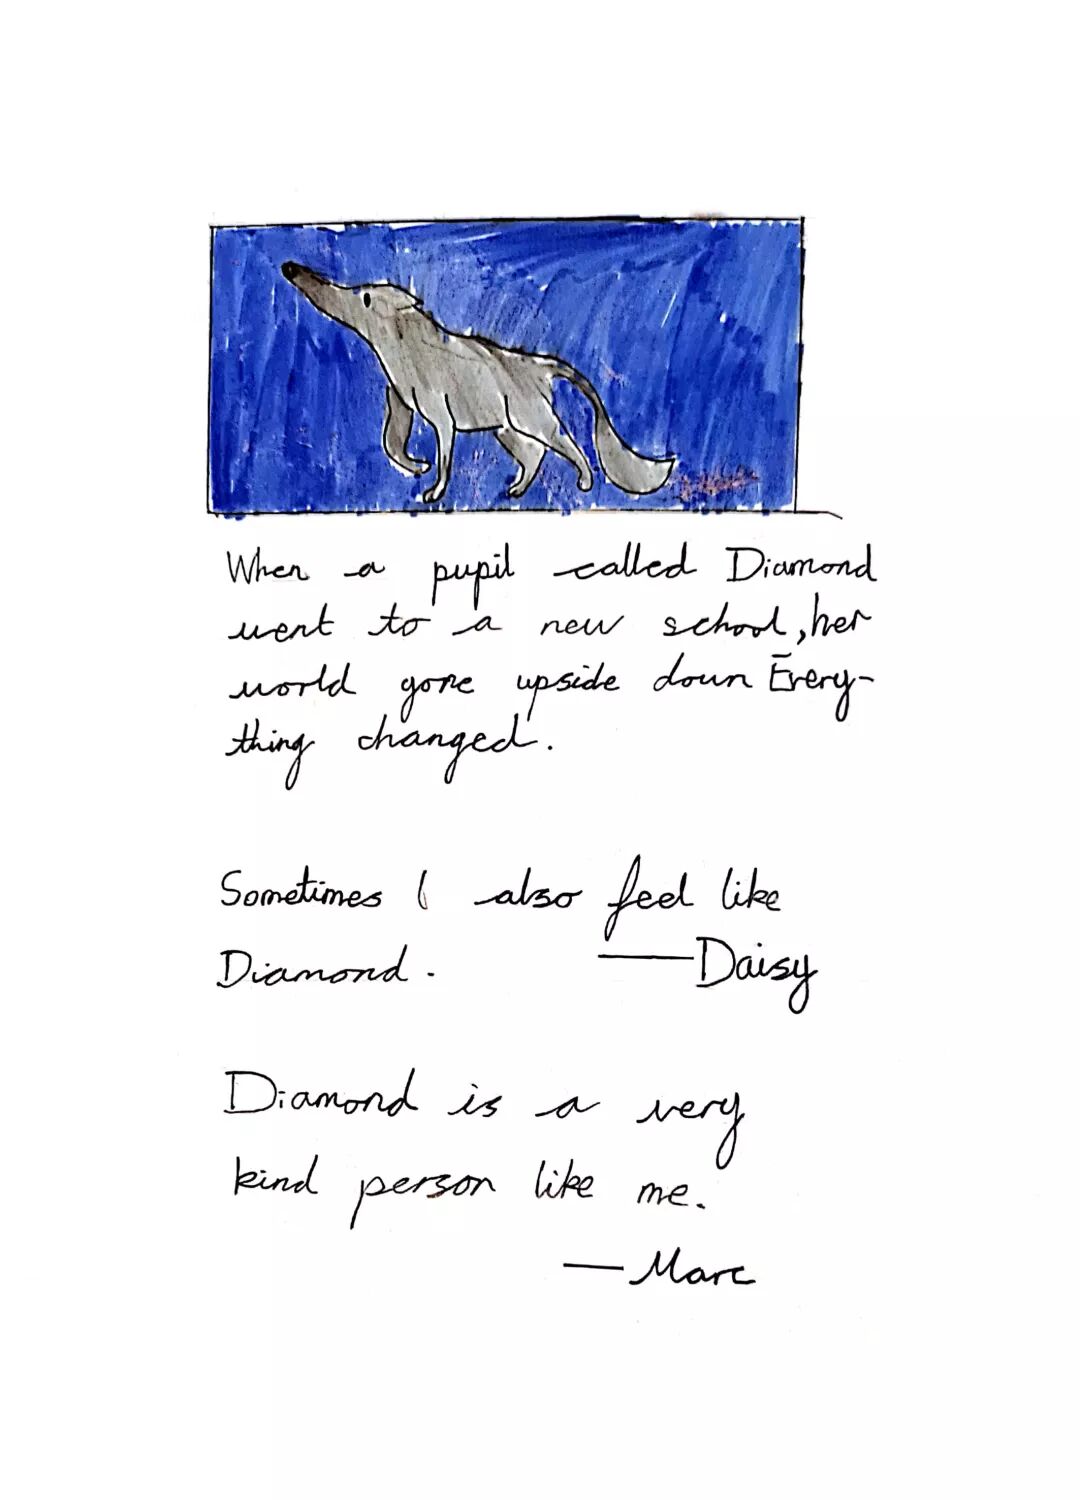 When a pupil called Diamond
went to a new school, her
world gone upside down Every-
thing changed.
Sometimes I also feel like
Diamond. —Daisy
Diamond is a very
kind person like me.
—Marc